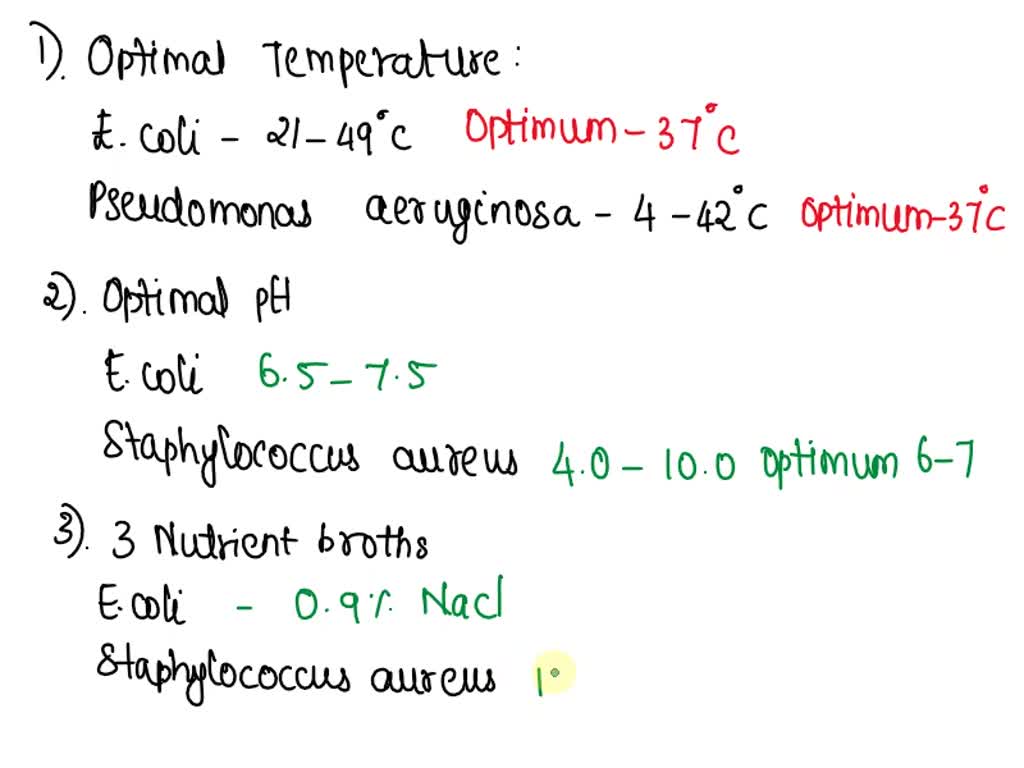 1). Optimal Temperature:
E. coli - 21-49°C Optimum - 37°C
Pseudomonas aeruginosa - 4-42°C Optimum-37°C
2). Optimal pH
E. coli 6.5-7.5
Staphylococcus aureus 4.0-10.0 Optimum 6-7
3). 3 Nutrient broths
E. coli - 0.9% Nacl
Staphylococcus aureus